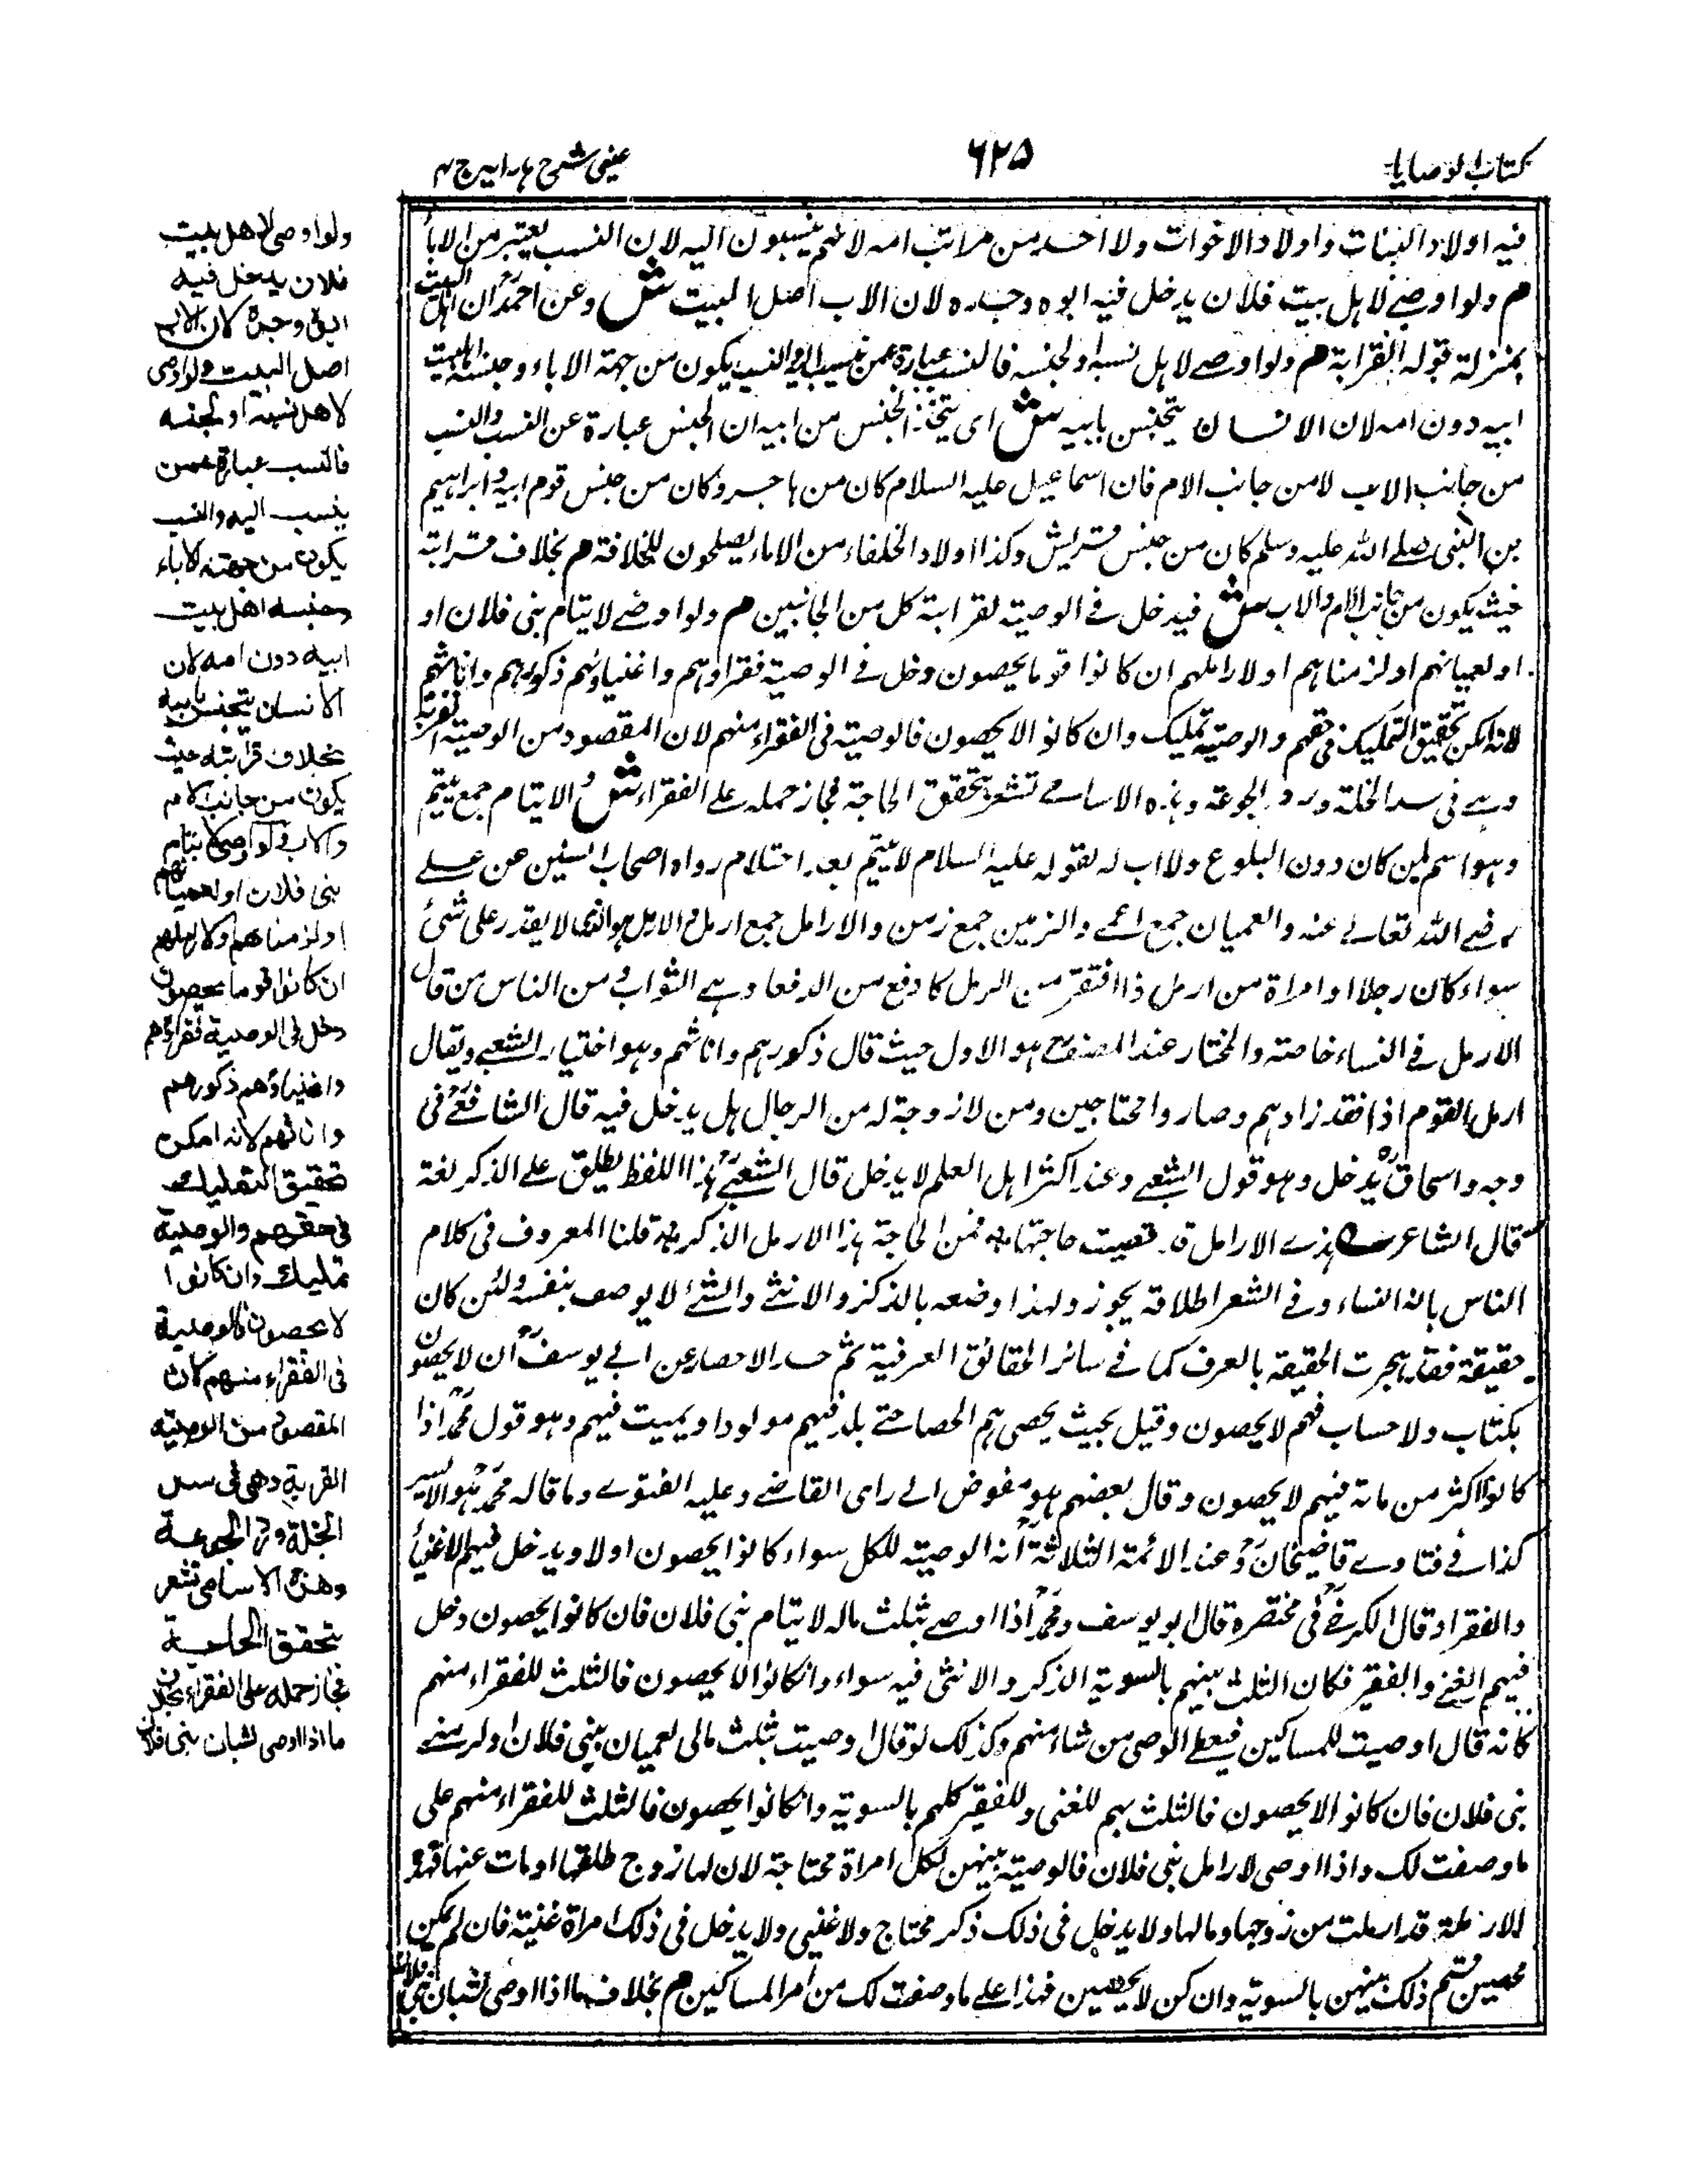 كتاب الوصايا
٦٢٥
عینی شرح ہدایہ ج ٤
فیہ اولاد البنات و اولاد الاخوات ولا احد من قرابۃ امہ لانہم ینسبون الیہ لان النسب یعتبر من الاباء
م ولو اوصے لاہل بیت فلان یدخل فیہ ابوہ وجدہ لان الاب اصل البیت ش وعن احمدؒ ان اہل البیت
بمنزلۃ قولہ القرابۃ م ولو اوصے لاہل نسبہ او لجنسہ فالنسب عبارۃ عمن ینسب الیہ والنسب یکون من جہۃ الاباء وجنسہ اہل بیت
ابیہ دون امہ لان الانسان یتجنس بابیہ ش ای یتخذ الجنس من ابیہ ان الجنس عبارۃ عن النسب والنسب
من جانب الاب لا من جانب الام فان اسماعیل علیہ السلام کان من ہاجر وکان من جنس قوم ابیہ وابراہیم
بن النبی صلے اللہ علیہ وسلم کان من جنس قریش وکذا اولاد الخلفاء من الاماء یصلحون للخلافۃ م بخلاف قرابتہ
حیث یکون من جانب الام والاب ش فیدخل فے الوصیۃ لقرابۃ کل من الجانبین م ولو اوصے لایتام بنی فلان او
او لعمیانہم او لزمناہم او لاراملہم ان کانوا قوما یحصون دخل فے الوصیۃ فقراؤہم واغنیاؤہم ذکورہم واناثہم
لانہ امکن تحقیق التملیک فی حقہم والوصیۃ تملیک وان کانوا لا یحصون فالوصیۃ فی الفقراء منہم لان المقصود من الوصیۃ القربۃ
وہے فی سد الخلۃ ورد الجوعۃ وہذہ الاسامے تشعر بتحقق الحاجۃ فجاز حملہ علے الفقراء ش الایتام جمع یتیم
وہو اسم لمن کان دون البلوغ ولا اب لہ لقولہ علیہ السلام لا یتیم بعد احتلام رواہ اصحاب السنین عن علے
رضے اللہ تعالے عنہ والعمیان جمع اعمے والزمین جمع زمن والارامل جمع ارمل الارمل ہو الذی لا یقدر علی شیٔ
سواء کان رجلا او امراۃ من ارمل اذا افتقر من الرمل کا دفع من الدفعا وہے الثواب من الناس من قال
الارمل فے النساء خاصۃ والمختار عند المصنفؒ ہو الاول حیث قال ذکورہم واناثہم وہو اختیار الشعبے ویقال
ارمل القوم اذا فقد زادہم وصاروا محتاجین ومن لا زوجۃ لہ من الرجال ہل یدخل فیہ قال الشافعےؒ فی
وجہ واسحاقؒ یدخل وہو قول الشعبے وعند اکثر اہل العلم لا یدخل قال الشعبےؒ ہذا اللفظ یطلق علے الذکر لغۃ
قال الشاعر ہذے الارامل قد قضیت حاجتہا فمن لحاجۃ ہذا الارمل الذکر قلنا المعروف فی کلام
الناس بانہ النساء وفے الشعر اطلاقہ یجوز ولہذا وضعہ بالذکر والانثے والشئے لا یوصف بنفسہ ولئن کان
حقیقۃ فقد ہجرت الحقیقۃ بالعرف کما فے سائر الحقائق العرفیۃ ثم حد الاحصار عن ابے یوسفؒ ان لا یحصون
بکتاب ولا حساب فہم لا یحصون وقیل بحیث یحصی ہم المحصا حتے یلد فیہم مولود او یمیت فیہم وہو قول محمدؒ اذا
کانوا اکثر من مائۃ فہم لا یحصون وقال بعضہم ہو مفوض الے رای القاضے وعلیہ الفتوے وما قالہ محمدؒ ہو الایسر
کذا فے فتاوے قاضیخانؒ وعند الائمۃ الثلاثۃؒ انہ الوصیۃ للکل سواء کانوا یحصون او لا ویدخل فیہم الاغنیاء
والفقراء وقال الکرخےؒ فی مختصرہ قال ابو یوسف ومحمدؒ اذا اوصے بثلث مالہ لایتام بنی فلان فان کانوا یحصون دخل
فیہم الغنے والفقیر فکان الثلث بینہم بالسویۃ الذکر والانثی فیہ سواء وان کانوا لا یحصون فالثلث للفقراء منہم
کانہ قال اوصیت للمساکین فیعطے الوصی من شاء منہم وکذلک لو قال اوصیت بثلث مالی لعمیان بنی فلان او لزمنے
بنی فلان فان کانوا لا یحصون فالثلث بہم للغنی وللفقیر کلہم بالسویۃ وان کانوا یحصون فالثلث للفقراء منہم علی
ما وصفت لک واذا اوصی لارامل بنی فلان فالوصیۃ بینہن لکل امراۃ محتاجۃ لان لہا زوج طلقہا او مات عنہا فہو
الارملۃ قد ارملت من زوجہا ومالہا ولا یدخل فی ذلک ذکر محتاج ولا غنیی ولا یدخل فی ذلک امراۃ غنیۃ فان لم یکن
محصین قسم ذلک بینہن بالسویۃ وان کن لا یحصین فہذا علے ما وصفت لک من امر المساکین م بخلاف ما اذا اوصی لشبان بنی فلان
ولو اوصی لاهل بیت
فلان یدخل فیه
ابوہ وجدہ لان الاب
اصل البیت ولو اوصی
لاهل نسبه او لجنسه
فالنسب عبارة عمن
ینسب الیه والنسب
یکون من جهته الاباء
وجنسه اهل بیت
ابیه دون امه لان
الانسان یتجنس بابیه
بخلاف قرابته حیث
یکون من جانب الام
والاب ولو اوصی لایتام
بنی فلان او لعمیانهم
او لزمناهم او لاراملهم
ان کانوا قوما یحصون
دخل فی الوصیة فقراؤهم
واغنیاؤهم ذکورهم
واناثهم لانه امکن
تحقیق التملیك
فی حقهم والوصیة
تملیك وان کانوا
لا یحصون فالوصیة
فی الفقراء منهم لان
المقصود من الوصیة
القربة وهی فی سد
الخلة ورد الجوعة
وهذه الاسامی تشعر
بتحقق الحاجة
فجاز حمله علی الفقراء بخلاف
ما اذا اوصی لشبان بنی فلان